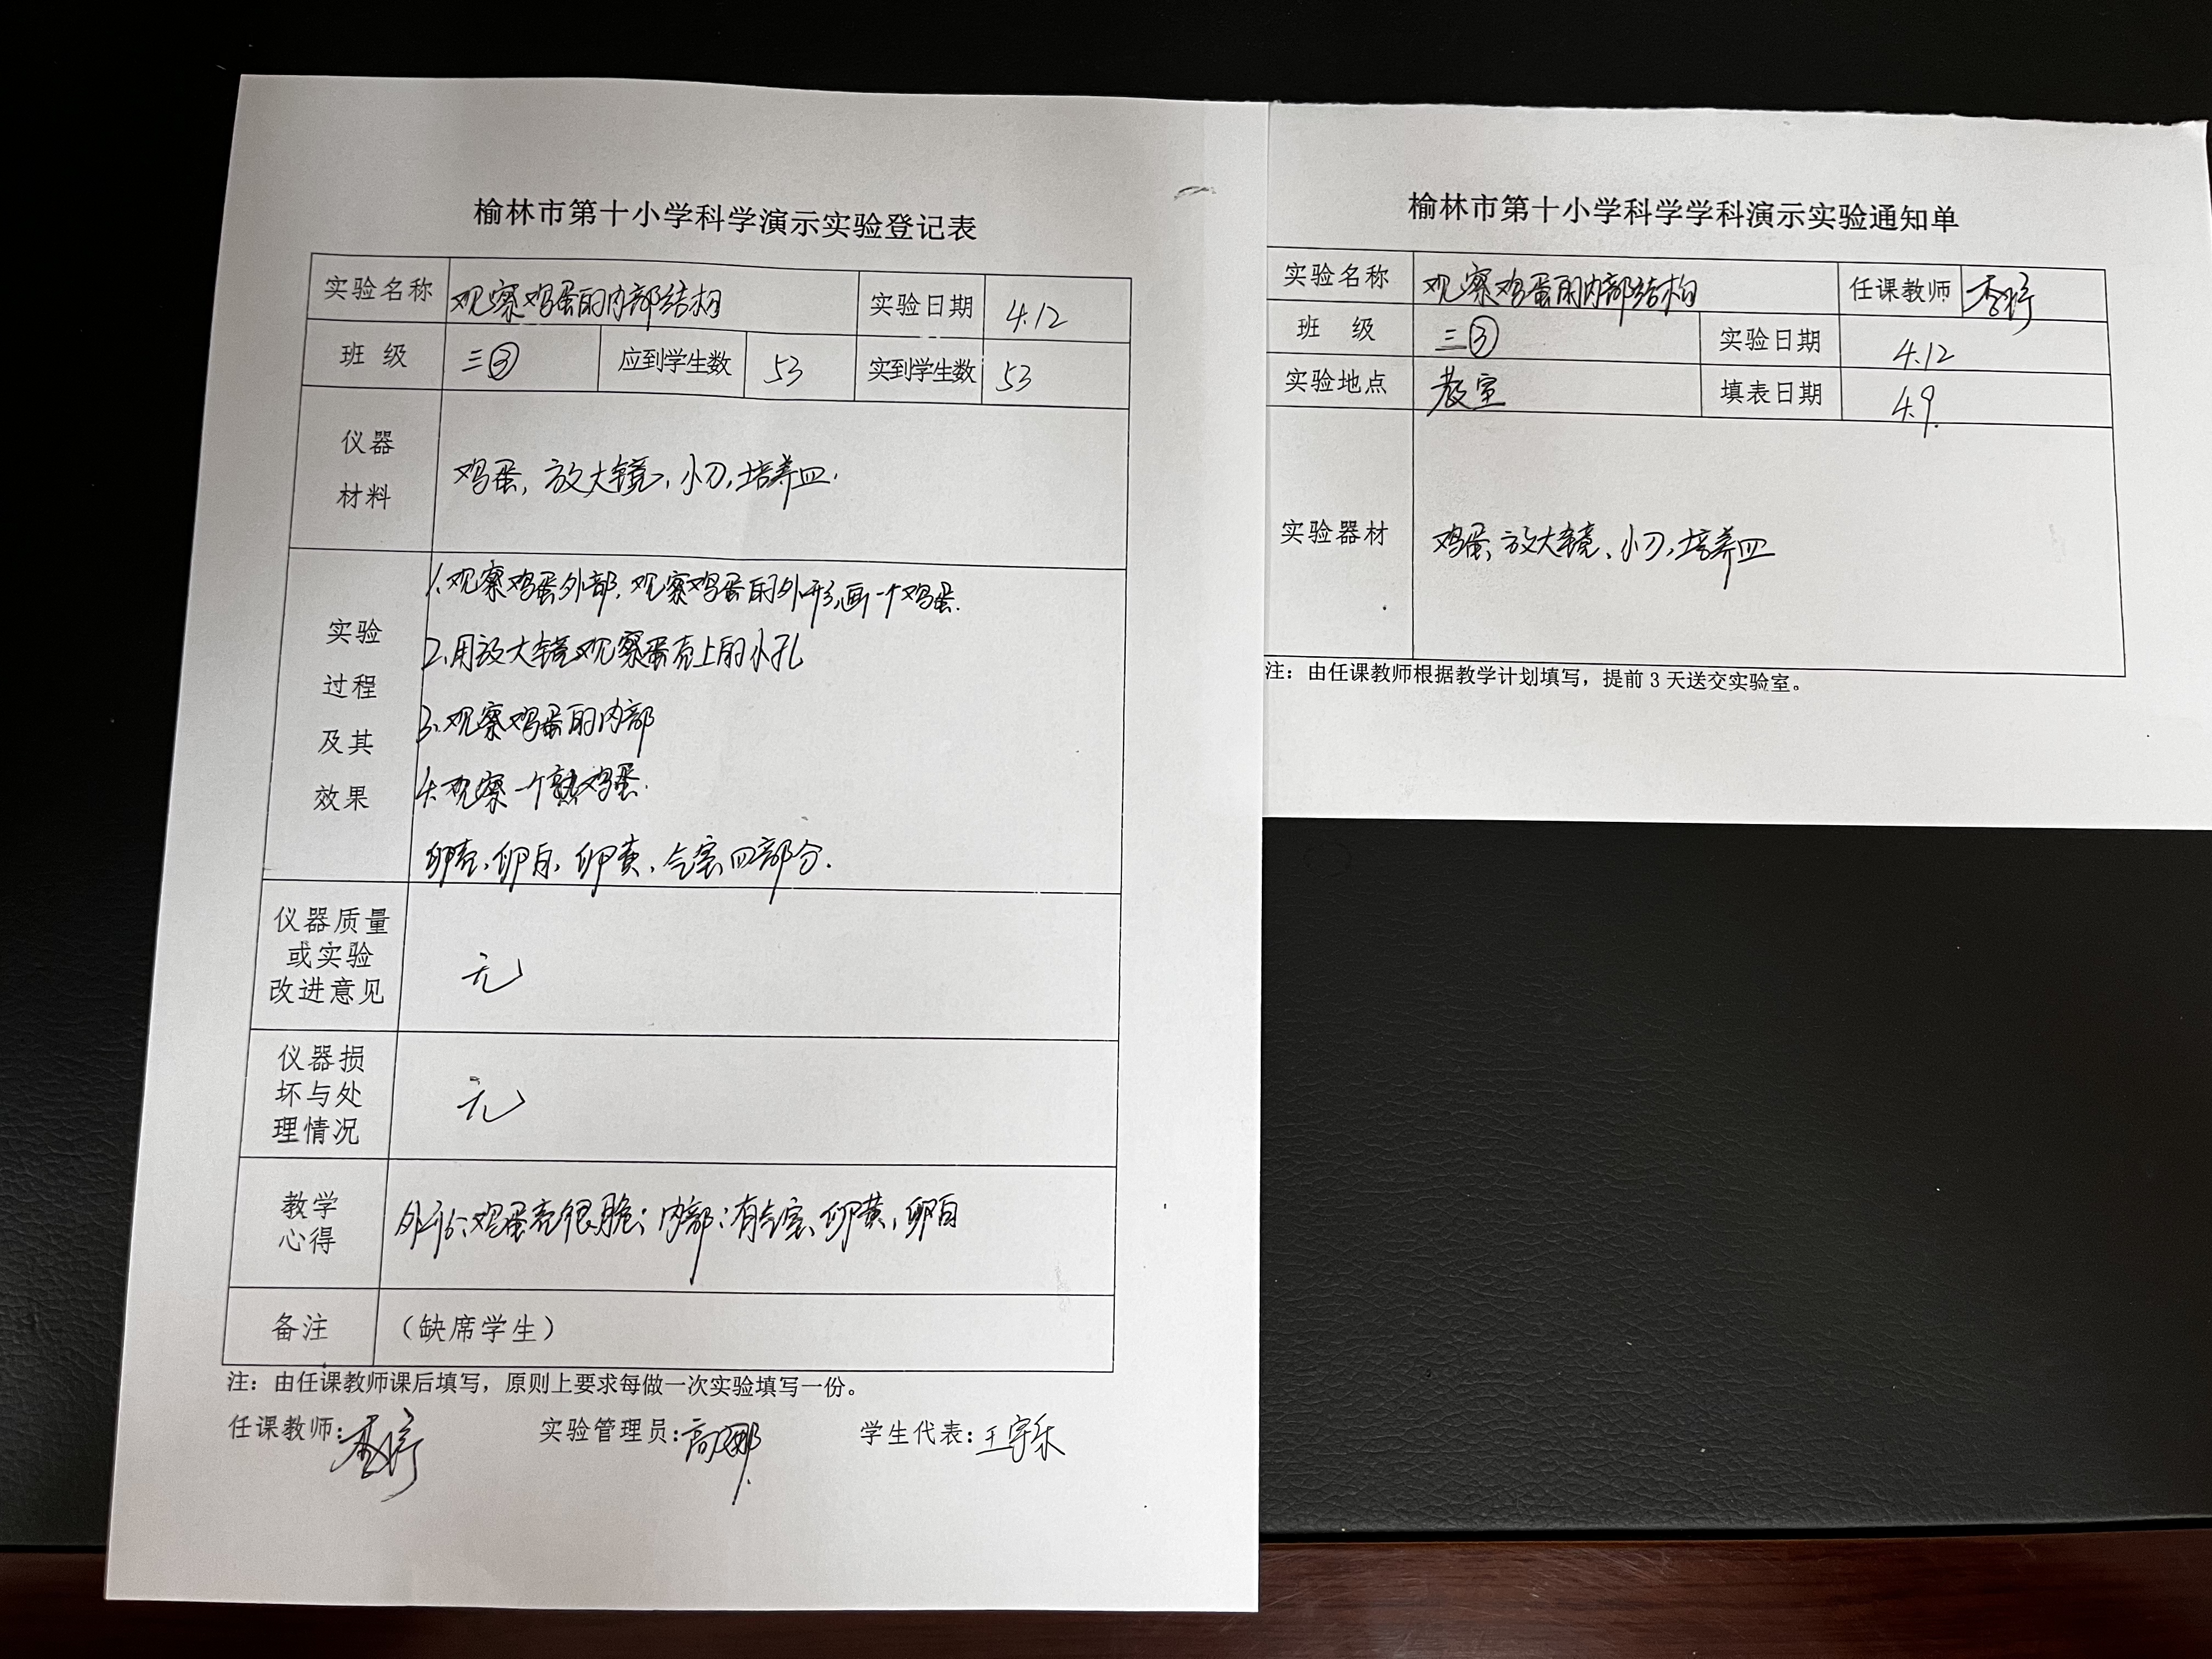 榆林市第十小学科学演示实验登记表
实验名称 观察鸡蛋的内部结构 实验日期 4.12
班 级 三③ 应到学生数 53 实到学生数 53
仪器
材料
鸡蛋, 放大镜, 小刀, 培养皿.
实验
过程
及其
效果
1.观察鸡蛋外部, 观察鸡蛋的外形,画一个鸡蛋.
2.用放大镜观察蛋壳上的小孔
3.观察鸡蛋的内部
4.观察一个熟鸡蛋.
卵壳、卵白、卵黄、气室四部分.
仪器质量
或实验
改进意见
无
仪器损
坏与处
理情况
无
教学
心得
外形:鸡蛋壳很脆; 内部:有气室、卵黄、卵白
备注 (缺席学生)
注: 由任课教师课后填写, 原则上要求每做一次实验填写一份。
任课教师: 实验管理员:高娜 学生代表:王宇乐
榆林市第十小学科学学科演示实验通知单
实验名称 观察鸡蛋的内部结构 任课教师
班 级 三③ 实验日期 4.12
实验地点 教室 填表日期 4.9.
实验器材 鸡蛋、放大镜、小刀、培养皿
注: 由任课教师根据教学计划填写, 提前 3 天送交实验室。